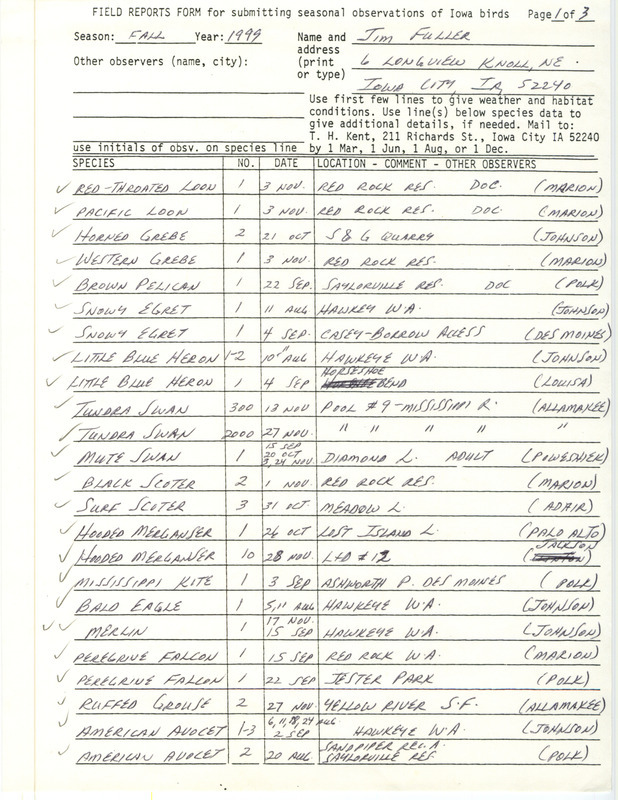 FIELD REPORTS FORM for submitting seasonal observations of Iowa birds Page 1 of 3
Season: FALL Year: 1999 Name and JIM FULLER
address
Other observers (name, city): (print 6 LONGVIEW KNOLL, NE.
or type)
IOWA CITY, IA, 52240
Use first few lines to give weather and habitat
conditions. Use line(s) below species data to
give additional details, if needed. Mail to:
T. H. Kent, 211 Richards St., Iowa City IA 52240
use initials of obsv. on species line by 1 Mar, 1 Jun, 1 Aug, or 1 Dec.
SPECIES NO. DATE LOCATION - COMMENT - OTHER OBSERVERS
✓ RED-THROATED LOON 1 3 NOV. RED ROCK RES. DOC. (MARION)
✓ PACIFIC LOON 1 3 NOV. RED ROCK RES. DOC. (MARION)
✓ HORNED GREBE 2 21 OCT S & G QUARRY (JOHNSON)
✓ WESTERN GREBE 1 3 NOV. RED ROCK RES. (MARION)
✓ BROWN PELICAN 1 22 SEP. SAYLORVILLE RES. DOC (POLK)
✓ SNOWY EGRET 1 11 AUG HAWKEY W.A. (JOHNSON)
✓ SNOWY EGRET 1 4 SEP. CASEY-BORROW ACCESS (DES MOINES)
✓ LITTLE BLUE HERON 1-2 10" AUG HAWKEYE W.A. (JOHNSON)
✓ LITTLE BLUE HERON 1 4 SEP HORSESHOE BEND (LOUISA)
✓ TUNDRA SWAN 300 13 NOV POOL #9-MISSISSIPPI R. (ALLAMAKEE)
✓ TUNDRA SWAN 2000 27 NOV. " " " " "
✓ MUTE SWAN 1 15 SEP 20 OCT 3, 24 NOV. DIAMOND L. ADULT (POWESHIEK)
✓ BLACK SCOTER 2 1 NOV. RED ROCK RES. (MARION)
✓ SURF SCOTER 3 31 OCT. MEADOW L. (ADAIR)
✓ HOODED MERGANSER 1 26 OCT LOST ISLAND L. (PALO ALTO)
✓ HOODED MERGANSER 10 28 NOV. L+D #12 (JACKSON)
✓ MISSISSIPPI KITE 1 3 SEP ASHWORTH P. DES MOINES (POLK)
✓ BALD EAGLE 1 5, 11 AUG HAWKEYE W.A. (JOHNSON)
✓ ✓ MERLIN 1 17 NOV. 15 SEP HAWKEYE W.A. (JOHNSON)
✓ PEREGRINE FALCON 1 15 SEP RED ROCK W.A. (MARION)
✓ PEREGRINE FALCON 1 22 SEP JESTER PARK (POLK)
✓ RUFFED GROUSE 2 27 NOV YELLOW RIVER S.F. (ALLAMAKEE)
✓ AMERICAN AVOCET 1-3 6, 11, 18, 24 AUG 2 SEP HAWKEYE W.A. (JOHNSON)
✓ AMERICAN AVOCET 2 20 AUG SANDPIPER REC. A. SAYLORVILLE RES. (POLK)